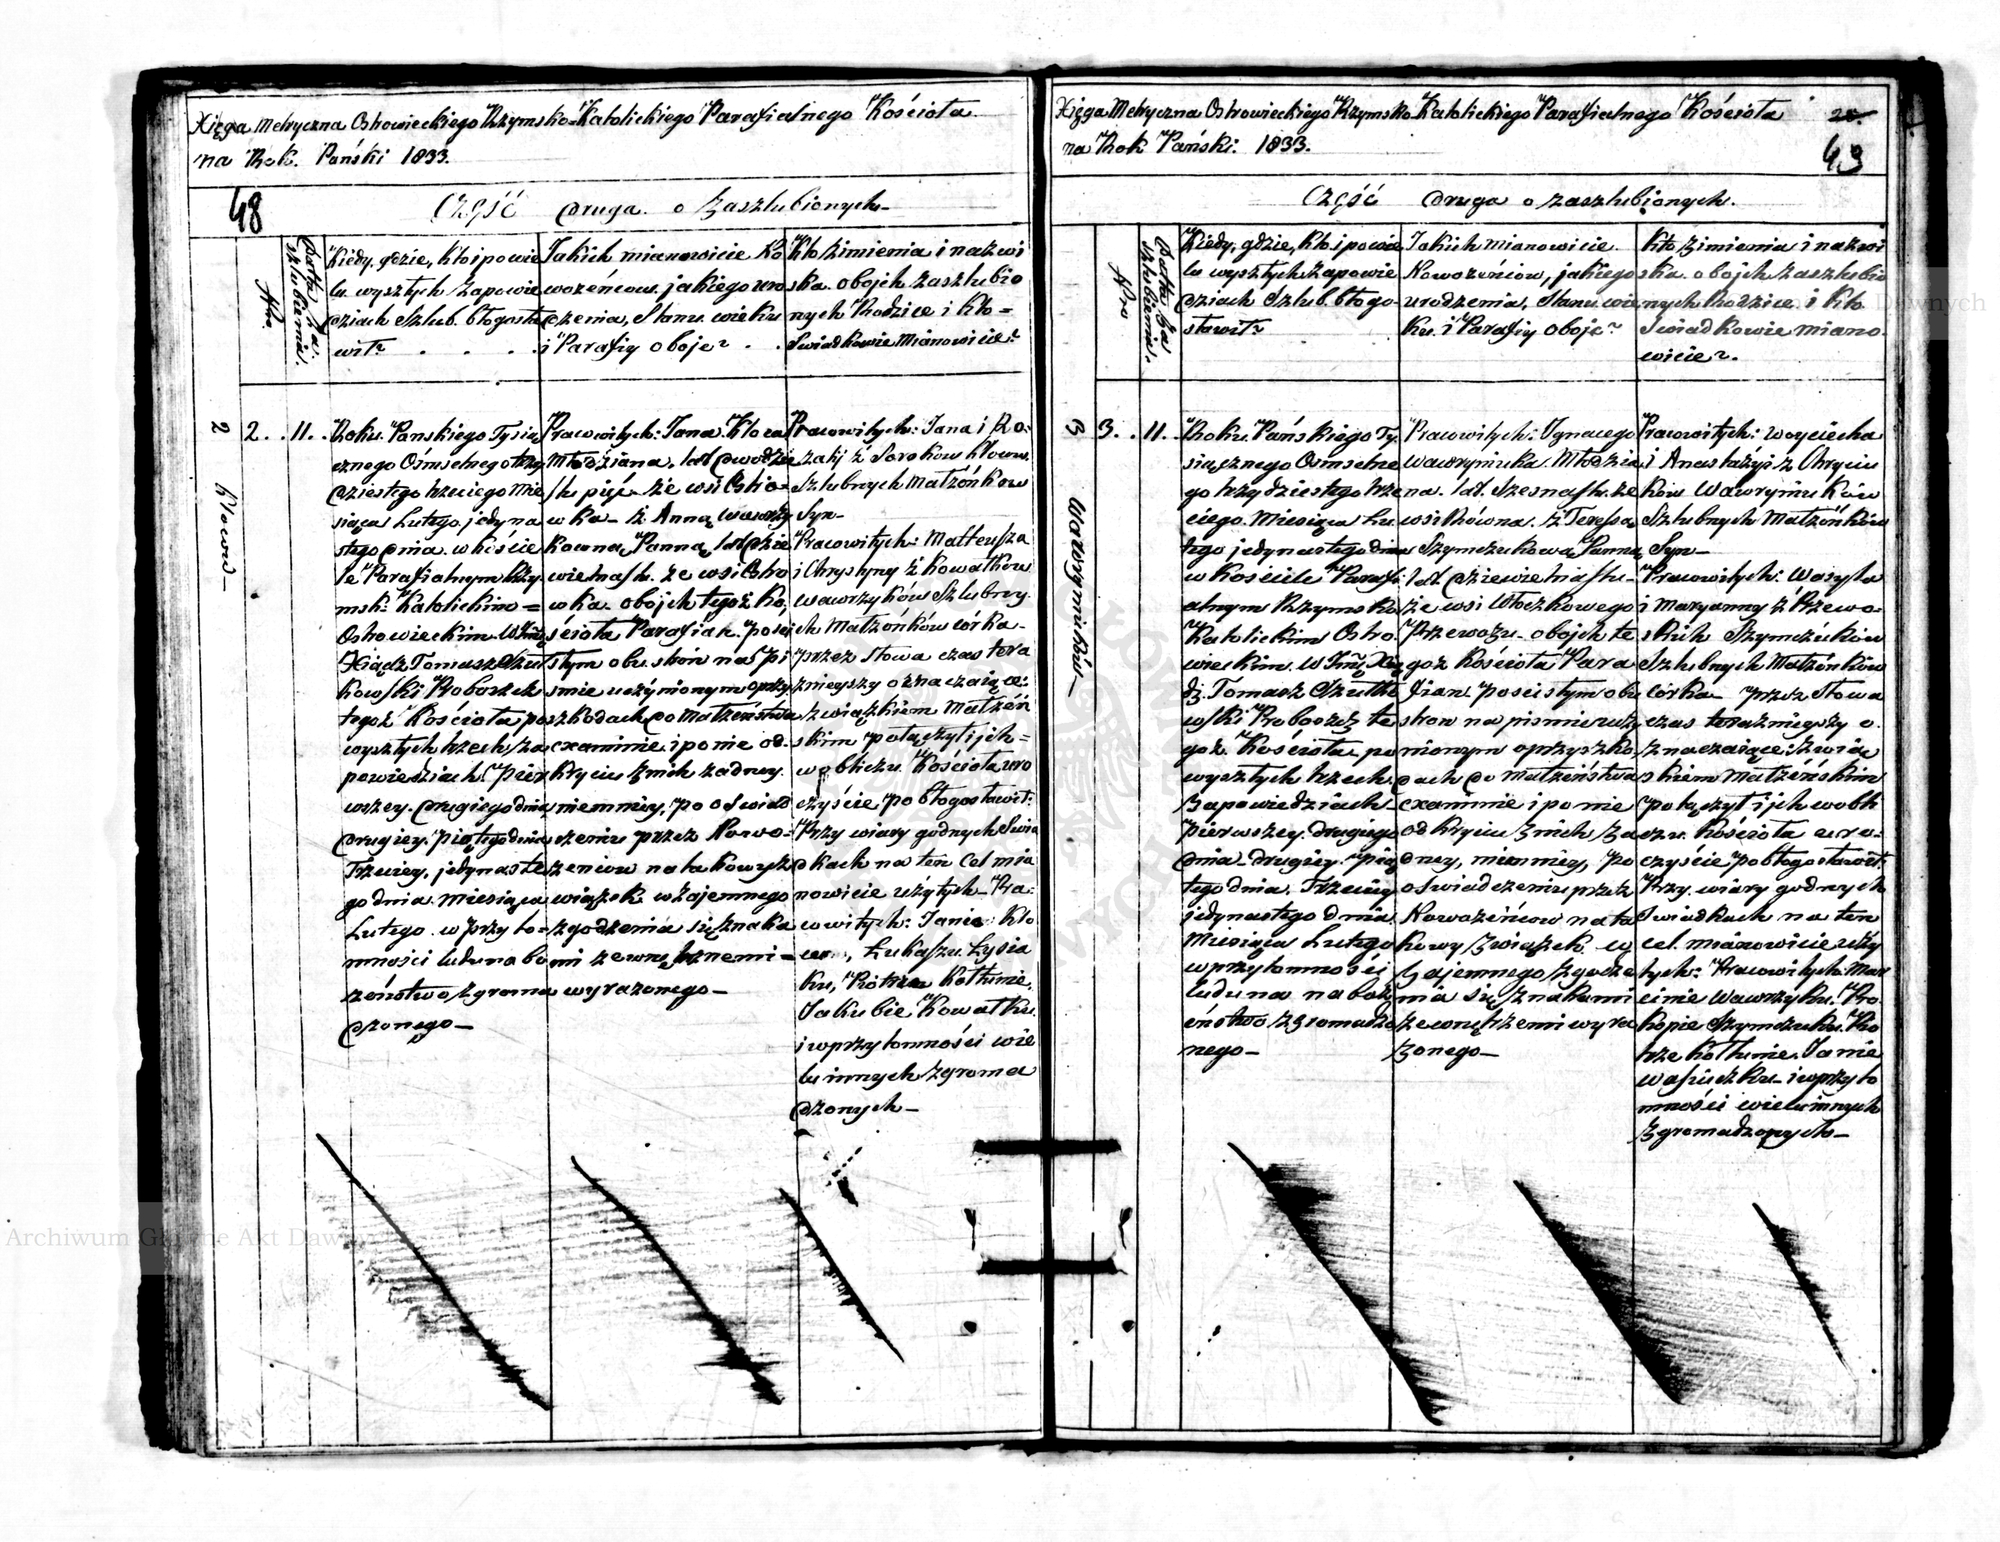 Xięga Metryczna Ostrowieckiego Rzymsko=Katolickiego Parafialnego Kościoła
na Rok Pański 1833.
48
Część druga o Zaszlubionych
Nro
Datta Za
szlubienia.
Kiedy, gdzie, kto i po wie
lu wyszłych Zapowie
dziach Szlub błogosła
wił?
Jakich mianowicie No
wożeńcow, jakiego uro
dzenia, Stanu, wieku
i Parafiy oboje?
Kto z imienia i nazwi
ska obojch zaszlubio
nych Rodzice i kto=
Swiadkowie mianowicie?
2
2. . 11. .
Klowu
Roku Panskiego Tysią
cznego Ośmsetnego trzy
dziestego trzeciego Mie
siąca Lutego jedyna
stego dnia w kościе
le Parafialnym Rzy
msk: Katolickim=
Ostrowieckim W Jmć
Xiądz Tomasz Szut
kowski Proboszcz
tegoż Kościoła po
wyszłych trzech za
powiedziach Pier
wszey drugiego dnia
drugiey piątego dnia
Trzeciey, jedynaste
go dnia miesiąca
Lutego w przyto=
mności ludu na bo
żeństwo zgroma
dzonego
Pracowitych: Jana Kłoca
Młodziana, lat dwodzie
stu pięć że wsi Ostro=
wka z Anną Wawrzy
kowna Panną, lat dzie
wietnastu ze wsi Ostro
wka obojch tegoż Ko,
ścioła Parafian poszei
stym obu stron na pi
smie uczynionym oprzy
szkodach do małżeństwa
examinie i po nie od=
kryciu z nich żadney
niemniey, po oświad
czeniu przez Nowo=
żeniow na takowy z
wiązek wzajemnego
zgodzenia się znaka
mi zewnętrznemi=
wyrażonego
Pracowitych: Jana i Ro:
zalj z Sorokow Kłowu
Szlubnych Małżonkow
Syn
Pracowitych: Matteusza
i Chrystyny z Kowalkow
Wawrzykow Szlubny
ch Małżonków córka
przez słowa czas tera
znieyszy oznaczaiące:
zwiąskiem Małżeń
skim połączył i jch=
w obliczu Kościoła uro
czyście pobłogosławił:
Przy wiary godnych Swia
dkach na ten cel mia
nowicie użytych Pra:
cowitych: Janie Kło
cu, Łukaszu Łysia
ku, Piotrze Kołtunie,
Jakubie Kowalku
i w przytomności wie
lu innych zgroma
dzonych
Xięga Metryczna Ostrowieckiego Rzymsko Katolickiego Parafialnego Kościoła
na Rok Pański: 1833.
43
Część druga o zaszlubionych.
Nro
Datta Za
szlubienia.
Kiedy, gdzie, kto i po wie
lu wyszłych Zapowie
dziach Szlub błogo=
sławił?
Jakich mianowicie
Nowożeńcow, jakiego
urodzenia, Stanu wie
ku i Parafiy oboje?
kto z imienia i nazwi
ska obojch Zaszlubio
nych Rodzice i kto
Swiadkowie miano
wicie?
3
3. . 11. .
Wawryniuków
Roku Pańskiego Ty.
siącznego Osmsetne
go trzydziestego trze
ciego Miesiąca Lu
tego jedynastego dnia
w Kościele Parafi
alnym Rzymsko
Katolickim Ostro
wieckim. W Jmć Xią
dz Tomasz Szutko
wski Proboszcz te
goż Kościoła, po
wyszłych trzech
Zapowiedziach
pierwszey drugiego
dnia drugiey pią
tego dnia Trzeciey
jedynastego dnia
Miesiąca Lutego
w przytomności
ludu na nabo
żeństwo zgromadzo
nego
Pracowitych: Jgnacego
Wawryniuka Młodzia
na lat Szesnastu ze
wsi Równa z Teresą
Szymczukową Panną
lat dziewietnastu
ze wsi Włoczkowego
Przewozu obojch te
goż Kościoła Para
fian po scisłym obu
stron na pismie uczy
nionym o przyszko
dach do małżeństwa
examinie i po nie
odkryciu z nich ża
dney, niemniey, po
oświadczeniu przez
Nowożeńcow na ta
kowy związek w
zajemnego zgodze
nia się znakami
zewnętrzemi wyra
żonego
Pracowitych: Woyciecha
i Anastażyi z Chryciu
kow Wawryniuków
Szlubnych Małżonków
Syn
Pracowitych: Wasyla
i Maryanny z Przewo
skich Szymczuków
Szlubnych Małżonków
córka przez słowa
czas teraznieyszy o
znaczaiące: zwią
skiem Małżeńskim
połączył i jch w obli
czu Kościoła uro=
czyście pobłogosławił.
Przy wiary godnych
Swiadkach na ten
cel mianowicie uży
tych: Pracowitych: Mar
cinie Wawrzyku, Pro
kopie Szymczuku, Pio
trze Kołtunie, Janie
i w przyto
mności wielu innych
zgromadzonych
Archiwum Główne Akt Dawnych